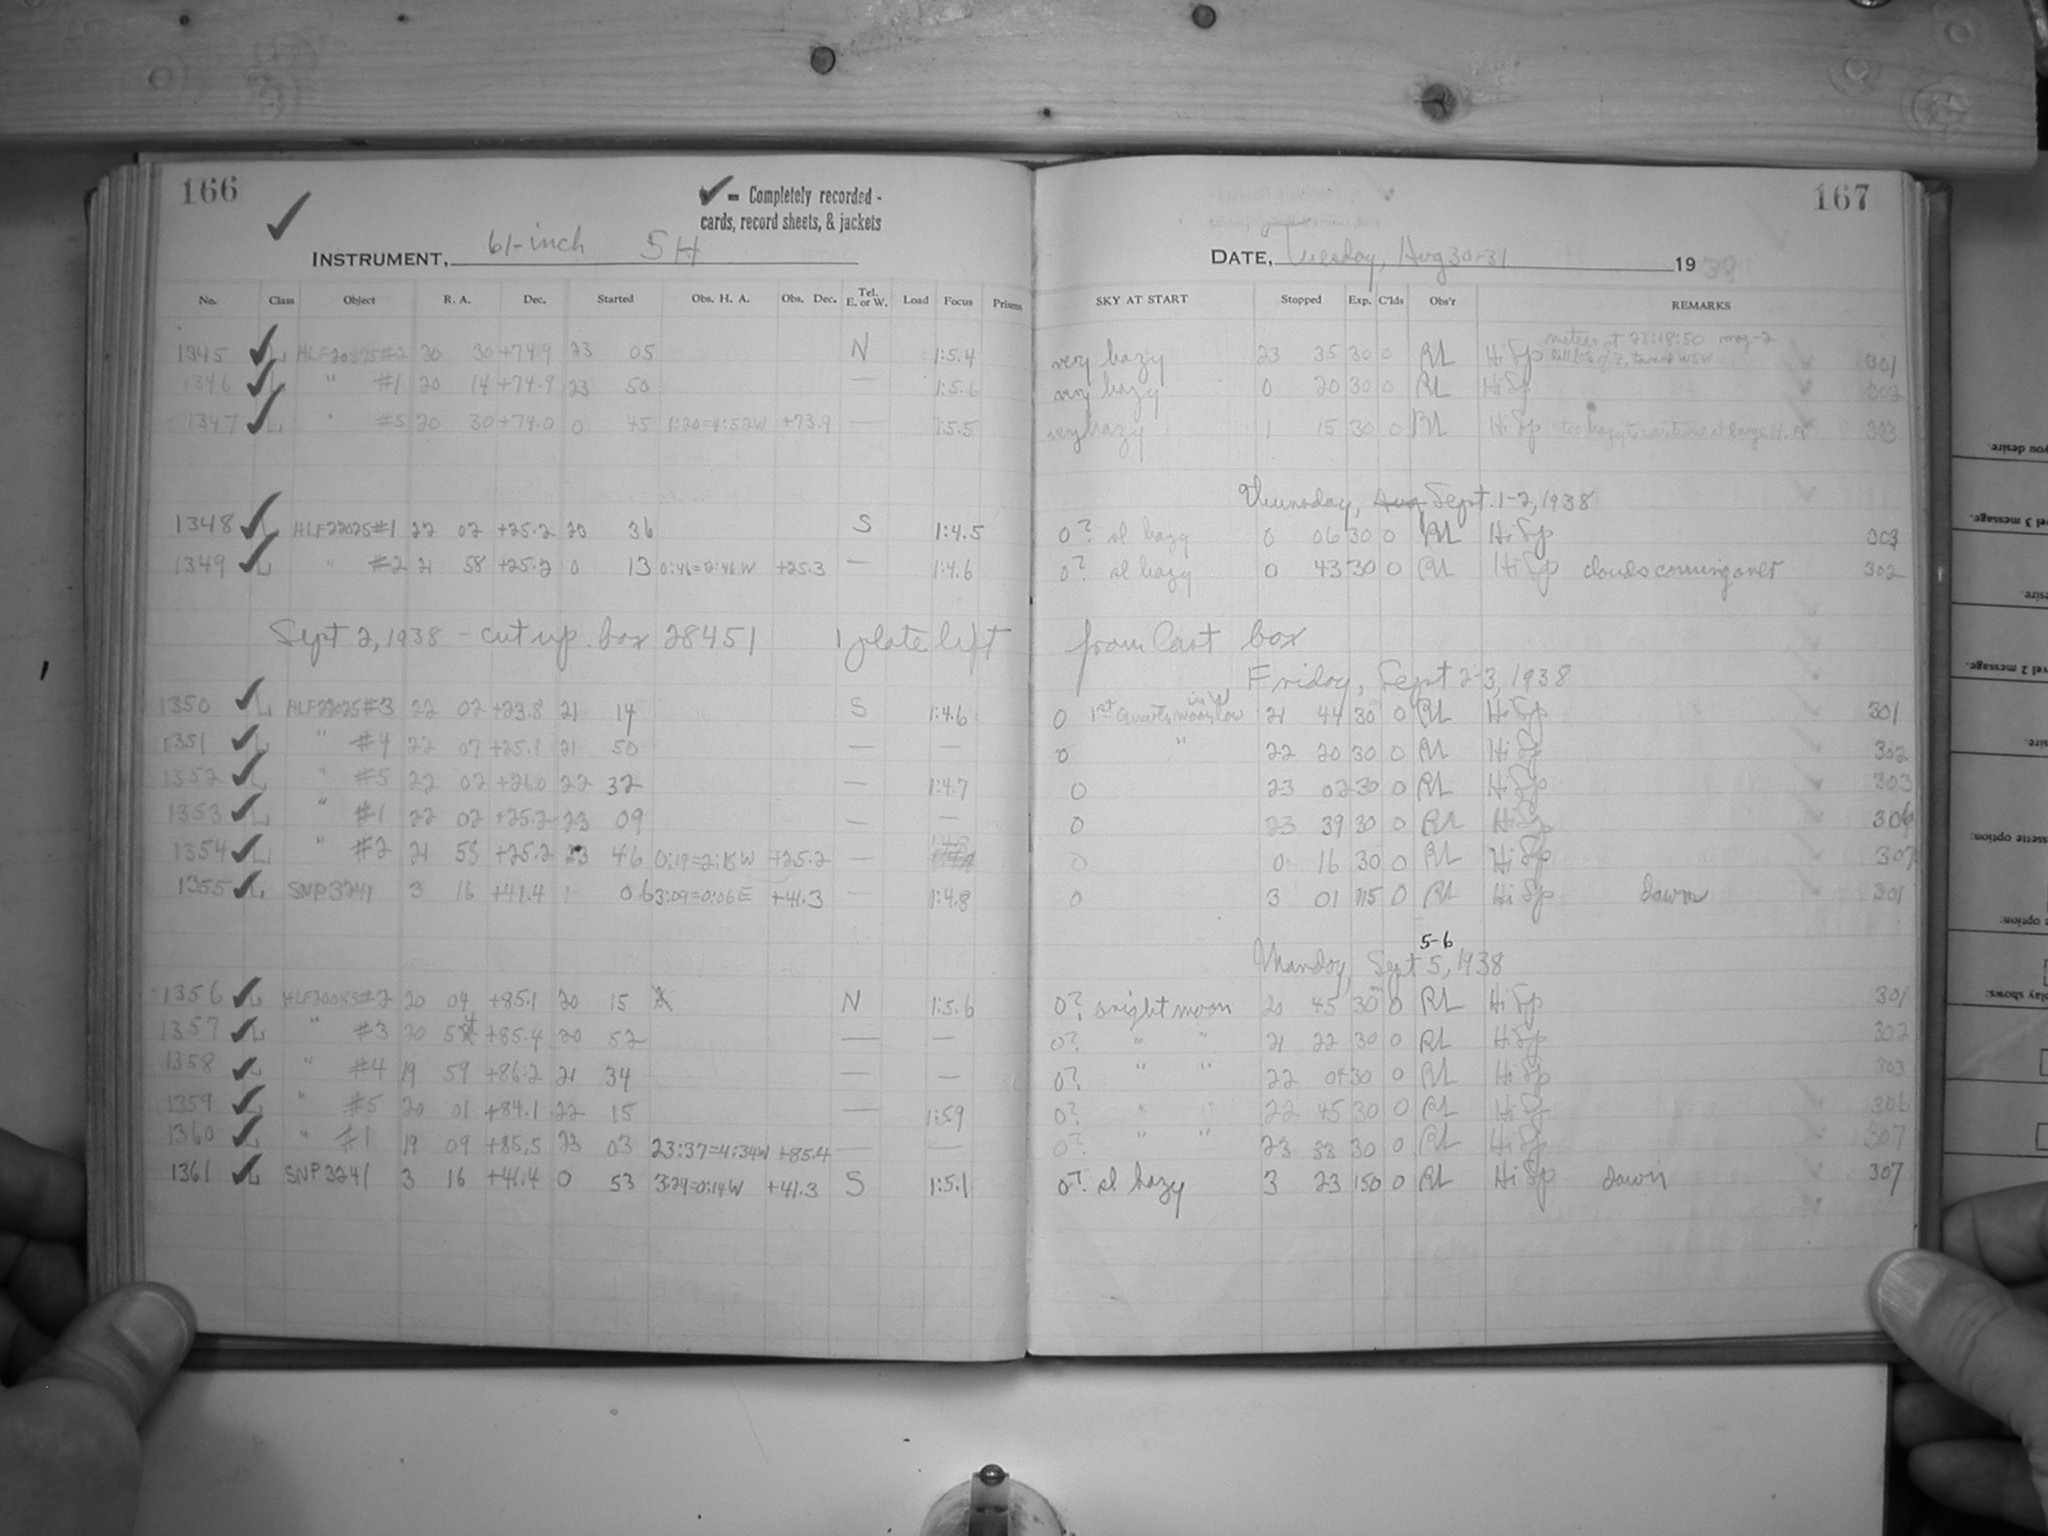 166
✓ = Completely recorded -
cards, record sheets, & jackets
167
INSTRUMENT, 61-inch SH
DATE, Tuesday, Aug 30-31 1938
No. Class Object R. A. Dec. Started Obs. H. A. Obs. Dec. Tel. E. or W. Load Focus Prisms SKY AT START Stopped Exp. C'lds Obs'r REMARKS
meteor at 23:18:50 mag-2
1345 ✓ L HLF20375#2 20 30 +74.9 23 05 N 1:5.4 very hazy 23 35 30 0 RL Hi Sp 301
1346 ✓ L " #1 20 14 +74.9 23 50 — 1:5.6 very hazy 0 20 30 0 RL Hi Sp 302
1347 ✓ L " #5 20 30 +74.0 0 45 1:20=4:52W +73.9 — 1:5.5 very hazy 1 15 30 0 RL Hi Sp too hazy to continue at large H. A. 303
Thursday, Aug Sept. 1-2, 1938
1348 ✓ L HLF22025#1 22 02 +25.2 23 36 S 1:4.5 0? sl hazy 0 06 30 0 RL Hi Sp 303
1349 ✓ L " #2 21 58 +25.2 0 13 0:46=2:46W +25.3 — 1:4.6 0? sl hazy 0 43 30 0 RL Hi Sp clouds coming over 302
Sept 2, 1938 - cut up box 28451 1 plate left from last box
Friday, Sept 2-3, 1938
1350 ✓ L HLF22025#3 22 02 +23.8 21 14 S 1:4.6 0 1st Quarter moon low in W 21 44 30 0 RL Hi Sp 301
1351 ✓ L " #4 22 07 +25.1 21 50 — — 0 " 22 20 30 0 RL Hi Sp 302
1352 ✓ L " #5 22 02 +26.0 22 32 — 1:4.7 0 23 02 30 0 RL Hi Sp 303
1353 ✓ L " #1 22 02 +25.2 23 09 — — 0 23 39 30 0 RL Hi Sp 306
1354 ✓ L " #2 21 58 +25.2 23 46 0:19=2:18W +25.2 — 0 0 16 30 0 RL Hi Sp 307
1355 ✓ L SNP3241 3 16 +41.4 1 06 3:09=0:06E +41.3 — 1:4.8 0 3 01 115 0 RL Hi Sp dawn 301
5-6
Monday, Sept 5, 1938
1356 ✓ L HLF20085#2 20 04 +85.1 20 15 N 1:5.6 0? bright moon 20 45 30 0 RL Hi Sp 301
1357 ✓ L " #3 20 54 +85.4 20 52 — — 0? " " 21 22 30 0 RL Hi Sp 302
1358 ✓ L " #4 19 59 +86.2 21 34 — — 0? " " 22 04 30 0 RL Hi Sp 303
1359 ✓ L " #5 20 01 +84.1 22 15 — 1:59 0? " " 22 45 30 0 RL Hi Sp 306
1360 ✓ L " #1 19 09 +85.5 23 03 23:37=4:34W +85.4 — — 0? " " 23 33 30 0 RL Hi Sp 307
1361 ✓ L SNP3241 3 16 +41.4 0 53 3:29=0:14W +41.3 S 1:5.1 0? sl hazy 3 23 150 0 RL Hi Sp dawn 307
you desire.
vel 3 message.
sire.
vel 2 message.
sire.
ssette option:
e option:
play shows: